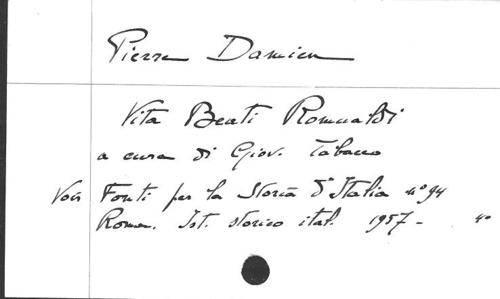 Pierre Damien
Vita Beati Romualdi
a cura di Giov. Tabacco
Voir Fonti per la Storia d'Italia n° 94
Roma. Ist. storico ital. 1957 - 4°